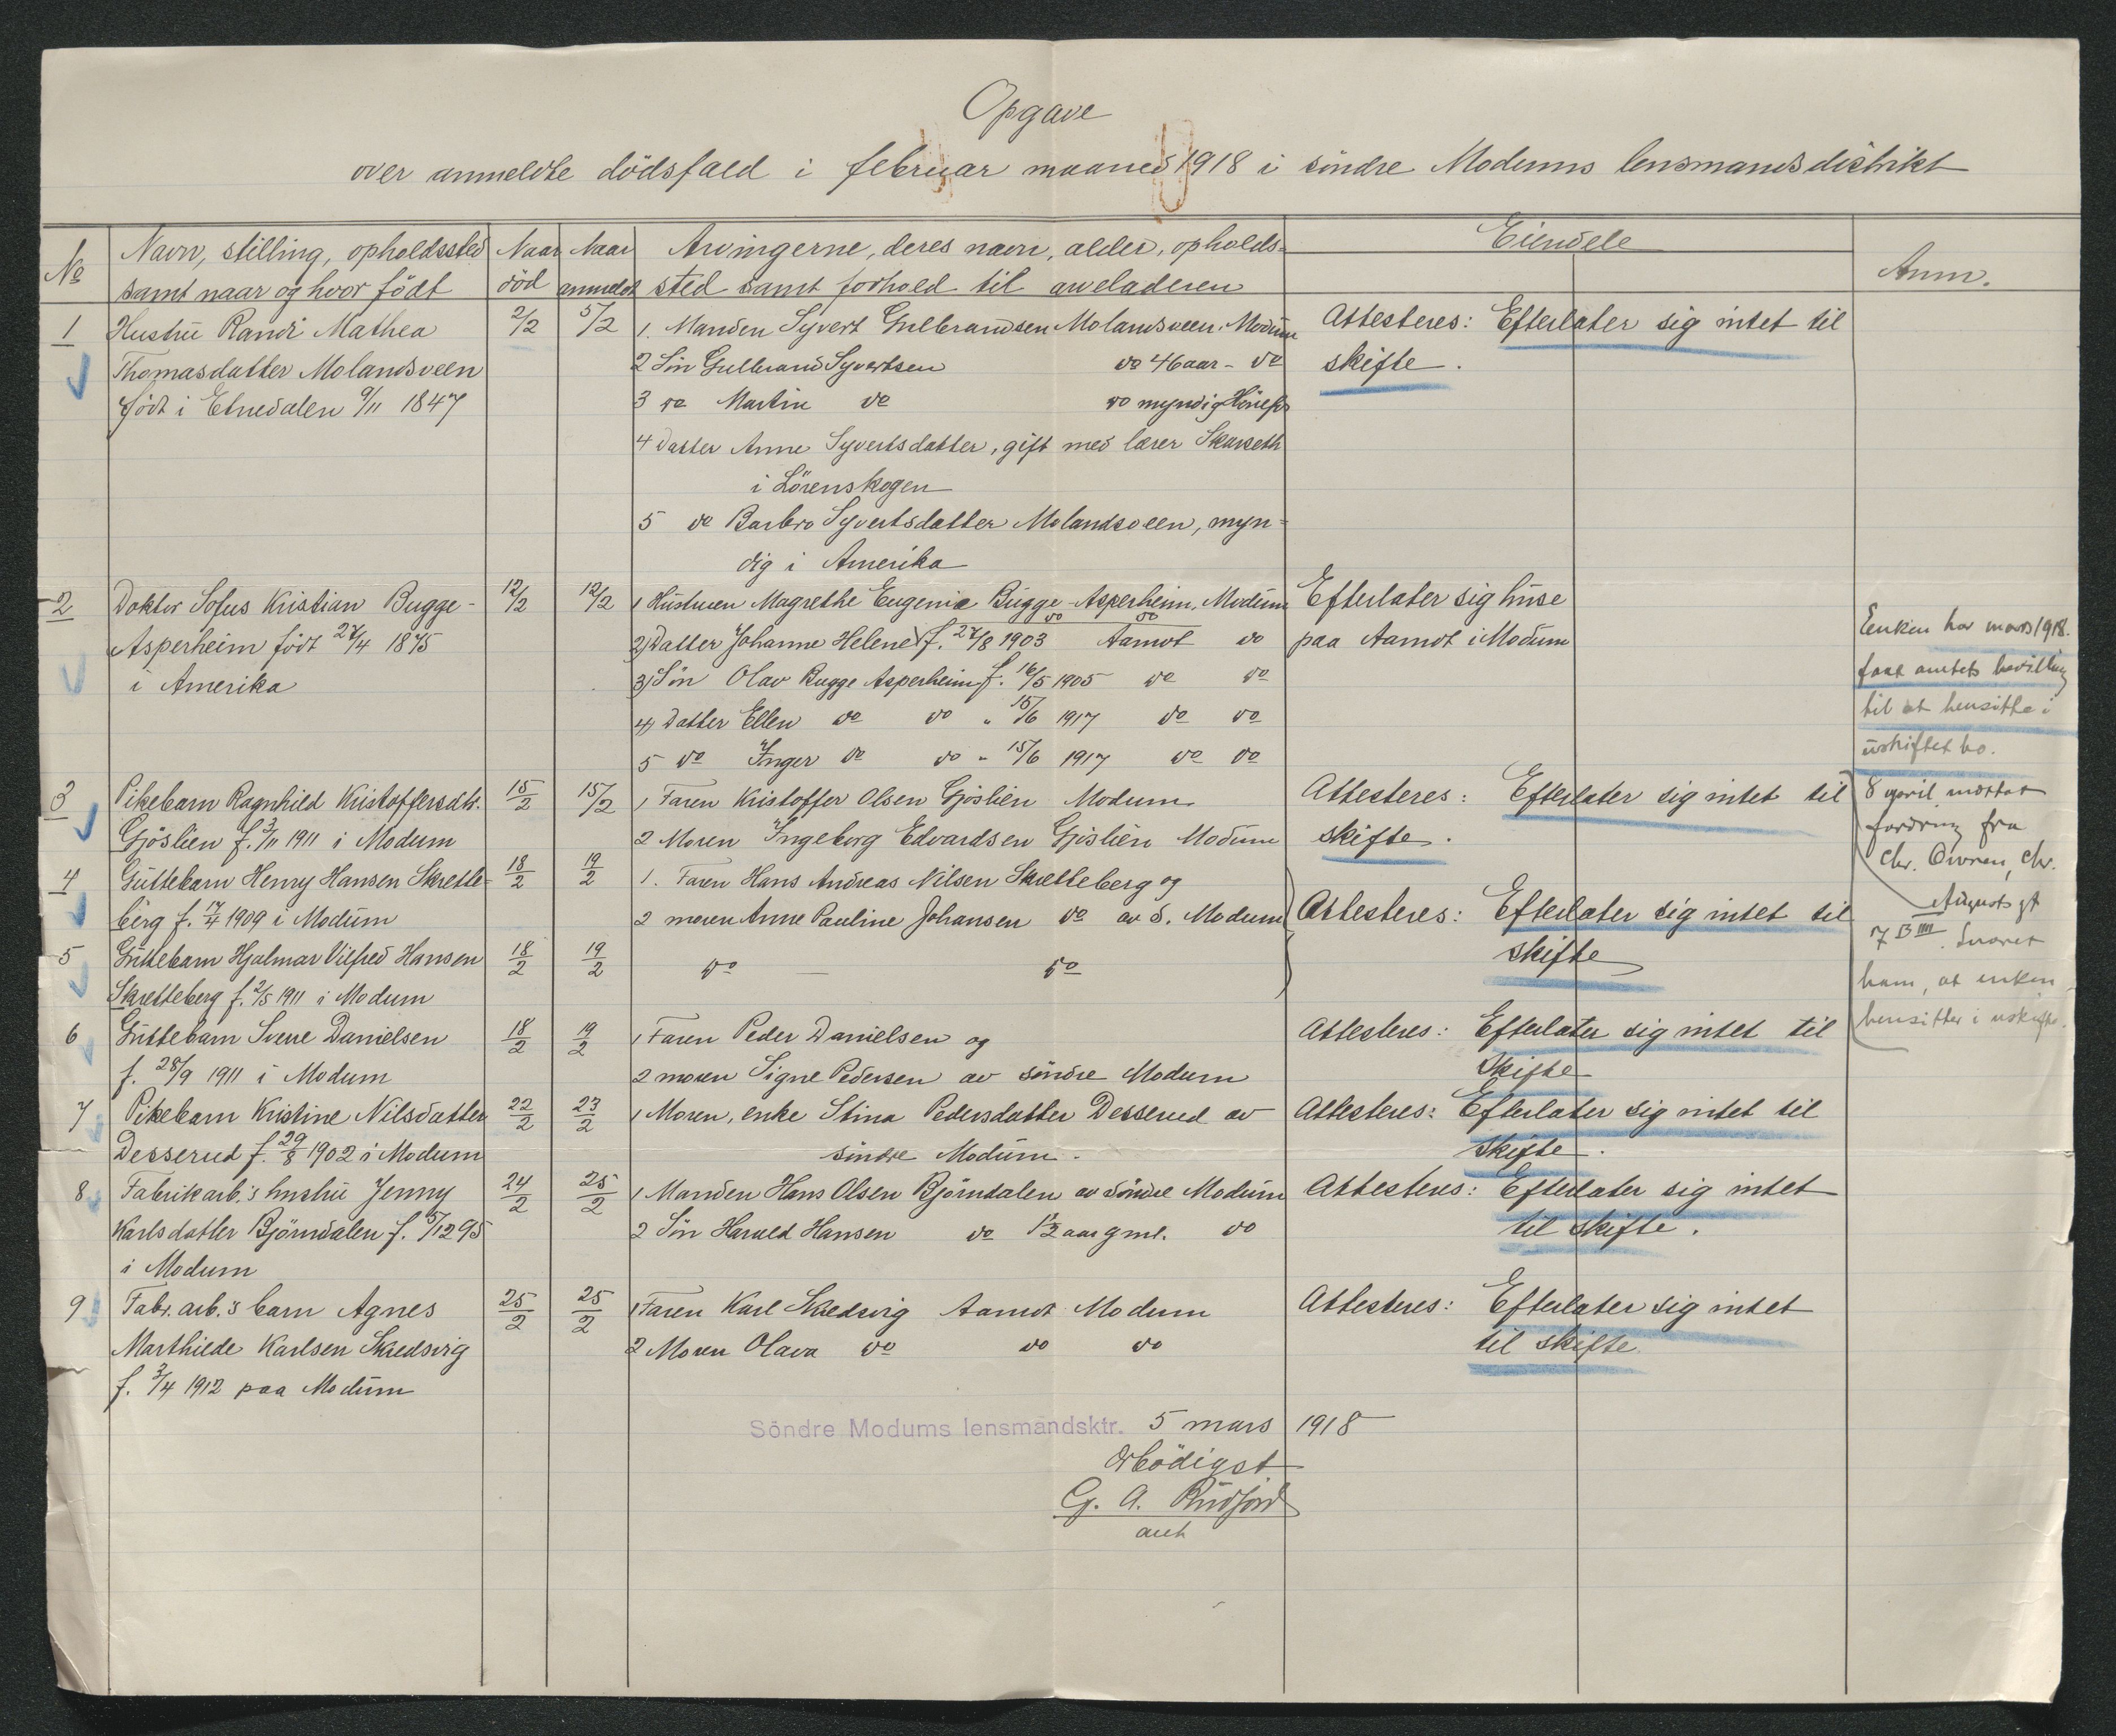 Opgave
over anmeldte dödsfald i februar maaned 1918 i söndre Modums lensmandsdistrikt
No
Navn, stilling, opholdssted
samt naar og hvor födt
Naar
död
Naar
anmeldt
Arvingerne, deres navn, alder, opholds-
sted samt forhold til arveladeren
Eiendele
Anm.
1 Hustru Randi Mathea
Thomasdatter Molandsveen
födt i Etnedalen 9/11 1847
2/2 5/2
1. Manden Syvert Gulbrandsen Molandsveen. Modum
2 Sön Gulbrand Syvertsen do 46 aar - do
3 do Martin do do myndig Hönefos
4 Datter Anne Syvertsdatter, gift med lærer Skarseth
i Lörenskogen
5 do Barbro Syvertsdatter Molandsveen, myn-
dig i Amerika
Attesteres: Efterlater sig intet til
skifte.
2 Doktor Sofus Kristian Bugge-
Asperheim födt 27/4 1875
i Amerika
12/2 12/2
1 Hustruen Magrethe Eugenie Bugge-Asperheim, Modum
do do
2) Datter Johanne Helene f. 27/8 1903 Aamot do
3) Sön Olav Bugge Asperheim f. 16/5 1905 do do
4) Datter Ellen do do " 15/6 1917 do do
5 do Inger do do " 15/6 1917 do do
Efterlater sig huse
paa Aamot i Modum
Enken har mars 1918.
faat amtets bevilling
til at hensitte i
uskiftet bo.
3 Pikebarn Ragnhild Kristoffersdtr.
Gjöslien f. 3/11 1911 i Modum
15/2 15/2
1 Faren Kristoffer Olsen Gjöslien Modum
2 Moren Ingeborg Edvardsen Gjöslien Modum
Attesteres: Efterlater sig intet til
skifte.
8 april mottat
fordring fra
Chr.
Augusts gt
7 B IIII. Svaret
ham, at enken
hensitter i uskifte.
4 Guttebarn Henry Hansen Skrette-
berg f. 17/4 1909 i Modum
18/2 19/2
1. Faren Hans Andreas Nilsen Skretteberg og
2 moren Anne Pauline Johansen do av S. Modum
Attesteres: Efterlater sig intet til
skifte
5 Guttebarn Hjalmar Vilfred Hansen
Skretteberg f. 2/5 1911 i Modum
18/2 19/2
do — do
6 Guttebarn Sverre Danielsen
f. 28/9 1911 i Modum
18/2 19/2
1 Faren Peder Danielsen og
2 moren Signe Pedersen av söndre Modum
Attesteres: Efterlater sig intet til
Skifte
7 Pikebarn Kristine Nilsdatter
Desserud f. 29/8 1902 i Modum
22/2 23/2
1 Moren, enke Stina Pedersdatter Desserud av
söndre Modum.
Attesteres: Efterlater sig intet til
skifte.
8 Fabrikarb.'s hustru Jenny
Karlsdatter Björndalen f. 5/12 95
i Modum
24/2 25/2
1 Manden Hans Olsen Björndalen av Söndre Modum
2 Sön Harald Hansen do 1/2 aar gml. do
Attesteres: Efterlater sig intet
til skifte.
9 Fabr. arb.'s barn Agnes
Marthilde Karlsen Skredsvig
f. 3/4 1912 paa Modum
25/2 25/2
1 Faren Karl Skredsvig Aamot Modum
2 Moren Olava do do do
Attesteres: Efterlater sig intet
til skifte.
Söndre Modums lensmandsktr. 5 mars 1918
Ærbödigst
G. A.